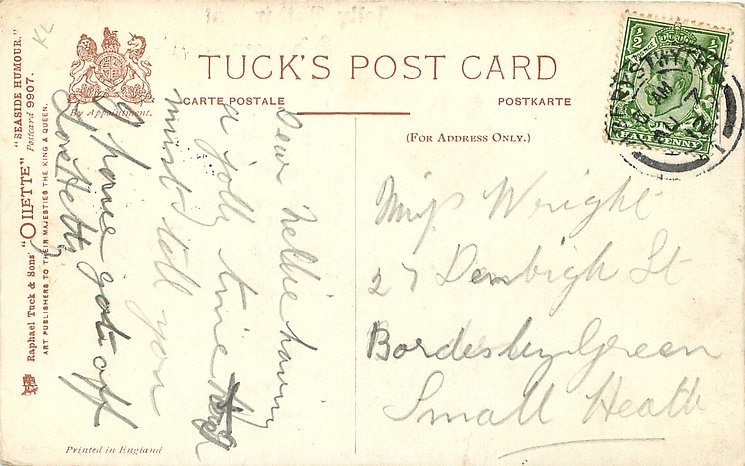 "SEASIDE HUMOUR."
Postcard 9907.
Raphael Tuck & Sons' "OILETTE"
ART PUBLISHERS TO THEIR MAJESTIES THE KING & QUEEN.
By Appointment.
TUCK'S POST CARD
CARTE POSTALE
POSTKARTE
(FOR ADDRESS ONLY.)
½ ½
HALF PENNY
Dear Nellie having
a jolly time
must tell you
I have got off
Love Hetty
Miss Wright
27 Denbigh St
Bordesley Green
Small Heath
Printed in England